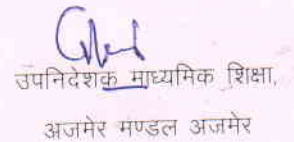 उपनिदेशक माध्यमिक शिक्षा,
अजमेर मण्डल अजमेर